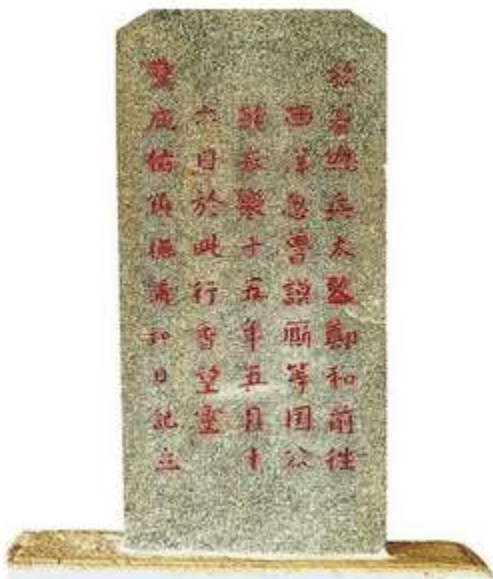 欽差總兵太監鄭和前往
西洋忽魯謨厮等国公
幹永樂十五年五月十
六日於此行香望靈
聖庇佑鎮撫蒲和日記立